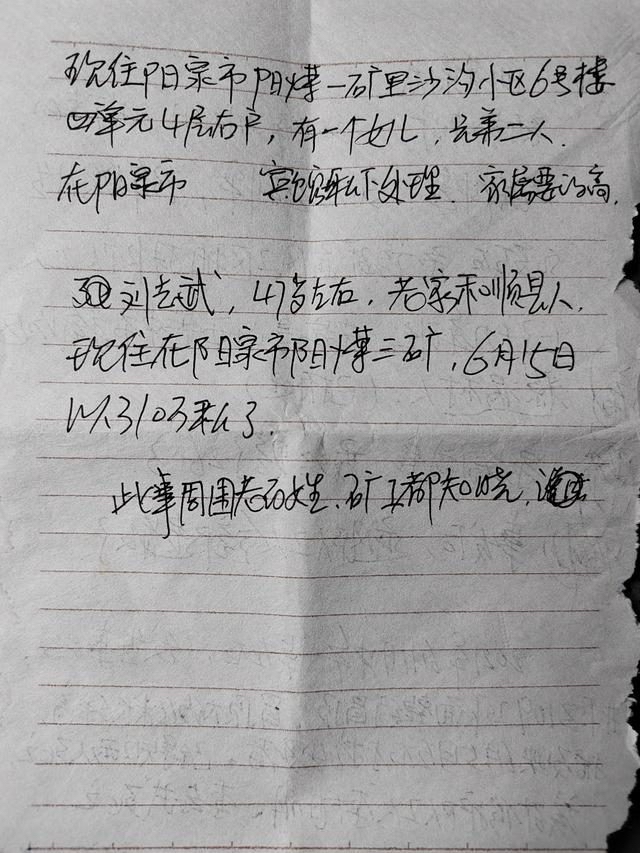 现住阳泉市阳煤一矿里沙沟小区6号楼
四单元4层右户，有一个女儿，兄弟二人.
在阳泉市 宾馆私下处理. 家属要的高.
刘志武，47岁左右，老家和顺县人，
现住在阳泉市阳煤三矿，6月15日
以310万私了.
此事周围老百姓、矿工都知晓，